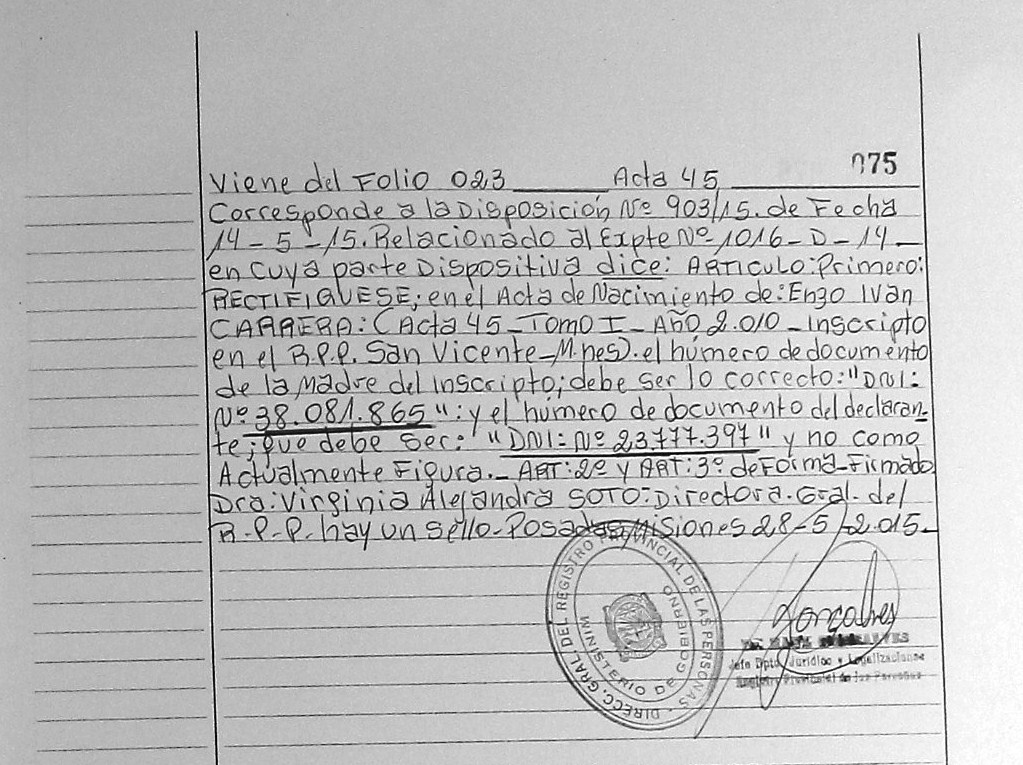 075
Viene del Folio 023 ______ Acta 45 ______
Corresponde a la Disposición Nº 903/15. de Fecha
14-5-15. Relacionado al Expte Nº 1016-D-14-
en cuya parte Dispositiva dice: ARTICULO: Primero:
RECTIFIQUESE; en el Acta de Nacimiento de: Enzo Ivan
CARRERA: (Acta 45-Tomo I-Año 2.010-Inscripto
en el R.P.P. San Vicente-Mnes). el número de documento
de la Madre del inscripto; debe ser lo correcto: "DNI:
Nº 38.081.865": y el número de documento del declaran-
te; que debe ser: "DNI: Nº 23.777.397" y no como
Actualmente Figura.- ART: 2º y ART: 3º de Forma-Firmado
Dra: Virginia Alejandra SOTO: Directora. Gral. del
R.P.P. hay un sello-Posadas Misiones 28-5-2.015.-
DIRECC. GRAL DEL REGISTRO PROVINCIAL DE LAS PERSONAS
MINISTERIO DE GOBIERNO
Gonçalves
Jefe Dpto. Jurídico y Legalizaciones
Registro Provincial de las Personas